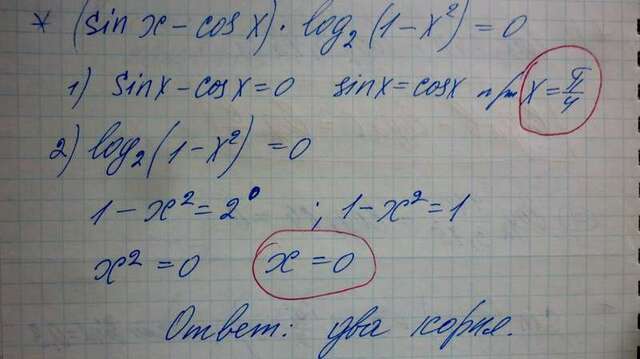 * (sin x - cos x) · log₂(1-x²) = 0
1) sin x - cos x = 0 sin x = cos x при x = π/4
2) log₂(1-x²) = 0
1-x² = 2⁰ ; 1-x² = 1
x² = 0 x = 0
Ответ: два корня.